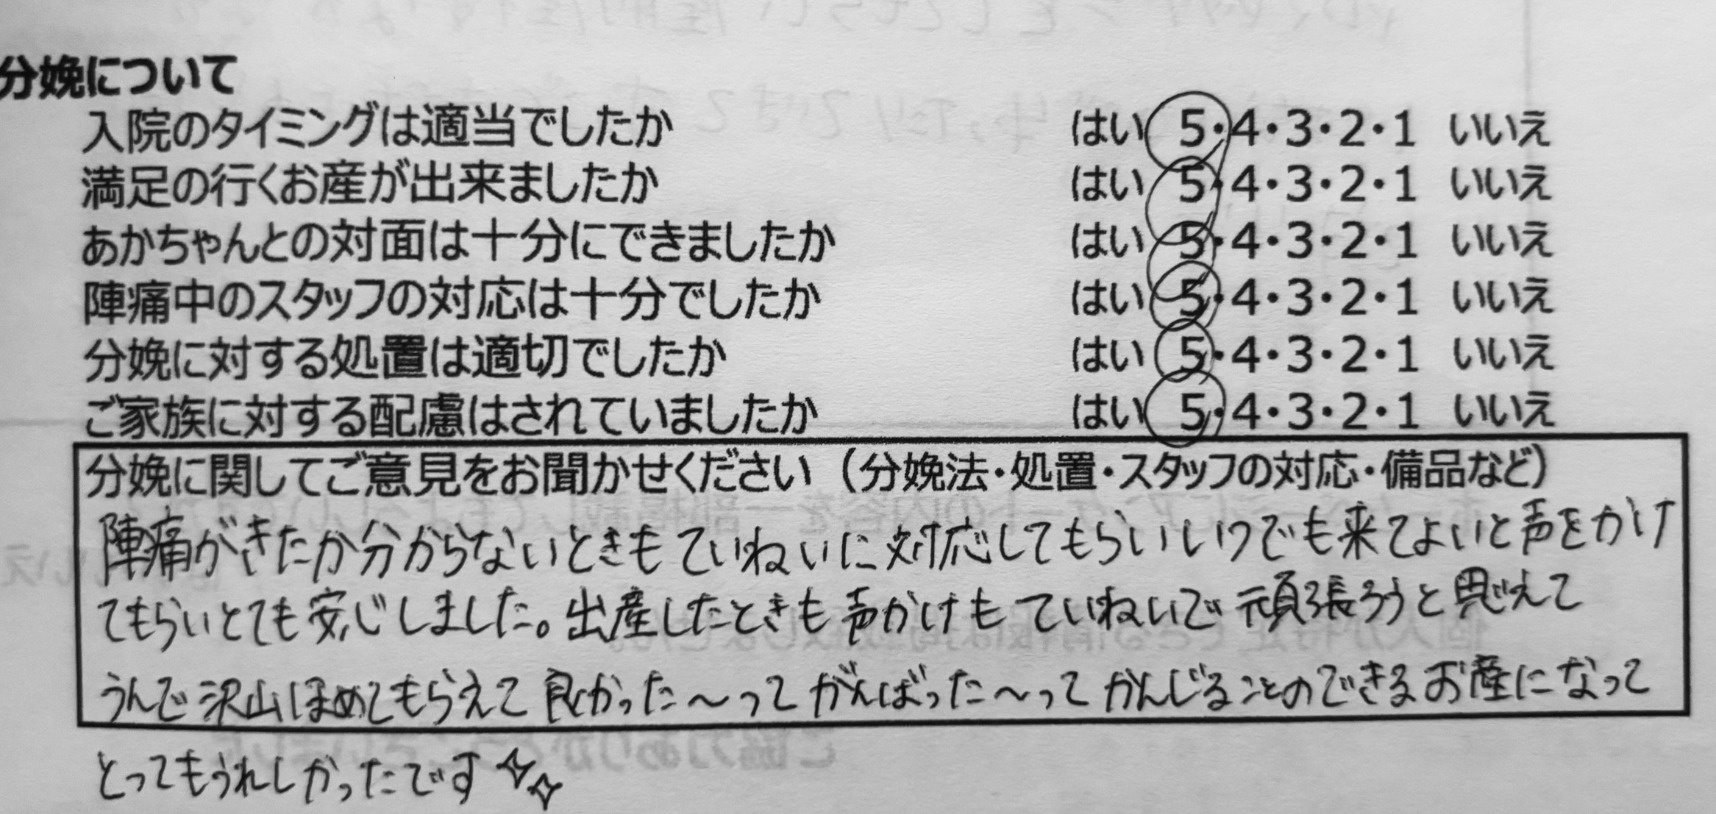 分娩について
入院のタイミングは適当でしたか はい 5・4・3・2・1 いいえ
満足の行くお産が出来ましたか はい 5・4・3・2・1 いいえ
あかちゃんとの対面は十分にできましたか はい 5・4・3・2・1 いいえ
陣痛中のスタッフの対応は十分でしたか はい 5・4・3・2・1 いいえ
分娩に対する処置は適切でしたか はい 5・4・3・2・1 いいえ
ご家族に対する配慮はされていましたか はい 5・4・3・2・1 いいえ
分娩に関してご意見をお聞かせください（分娩法・処置・スタッフの対応・備品など）
陣痛がきたか分からないときもていねいに対応してもらいいつでも来てよいと声をかけ
てもらいとても安じしました。出産したときも声かけもていねいで頑張ろうと思えて
うんで沢山ほめてもらえて良かった〜ってがんばった〜ってかんじることのできるお産になって
とってもうれしかったです